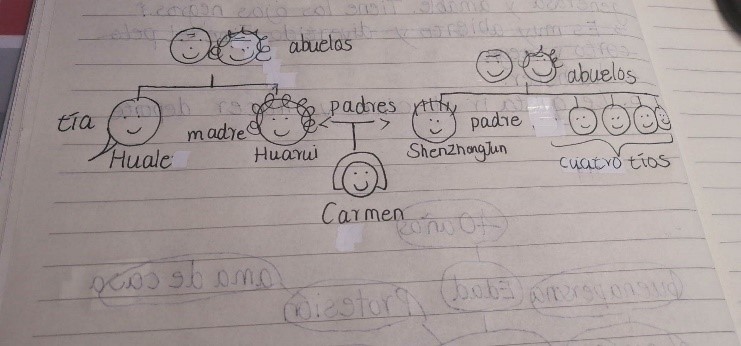 abuelos
abuelos
tía
madre
padres
padre
Huale
Huarui
ShenZhongJun
cuatro tíos
Carmen